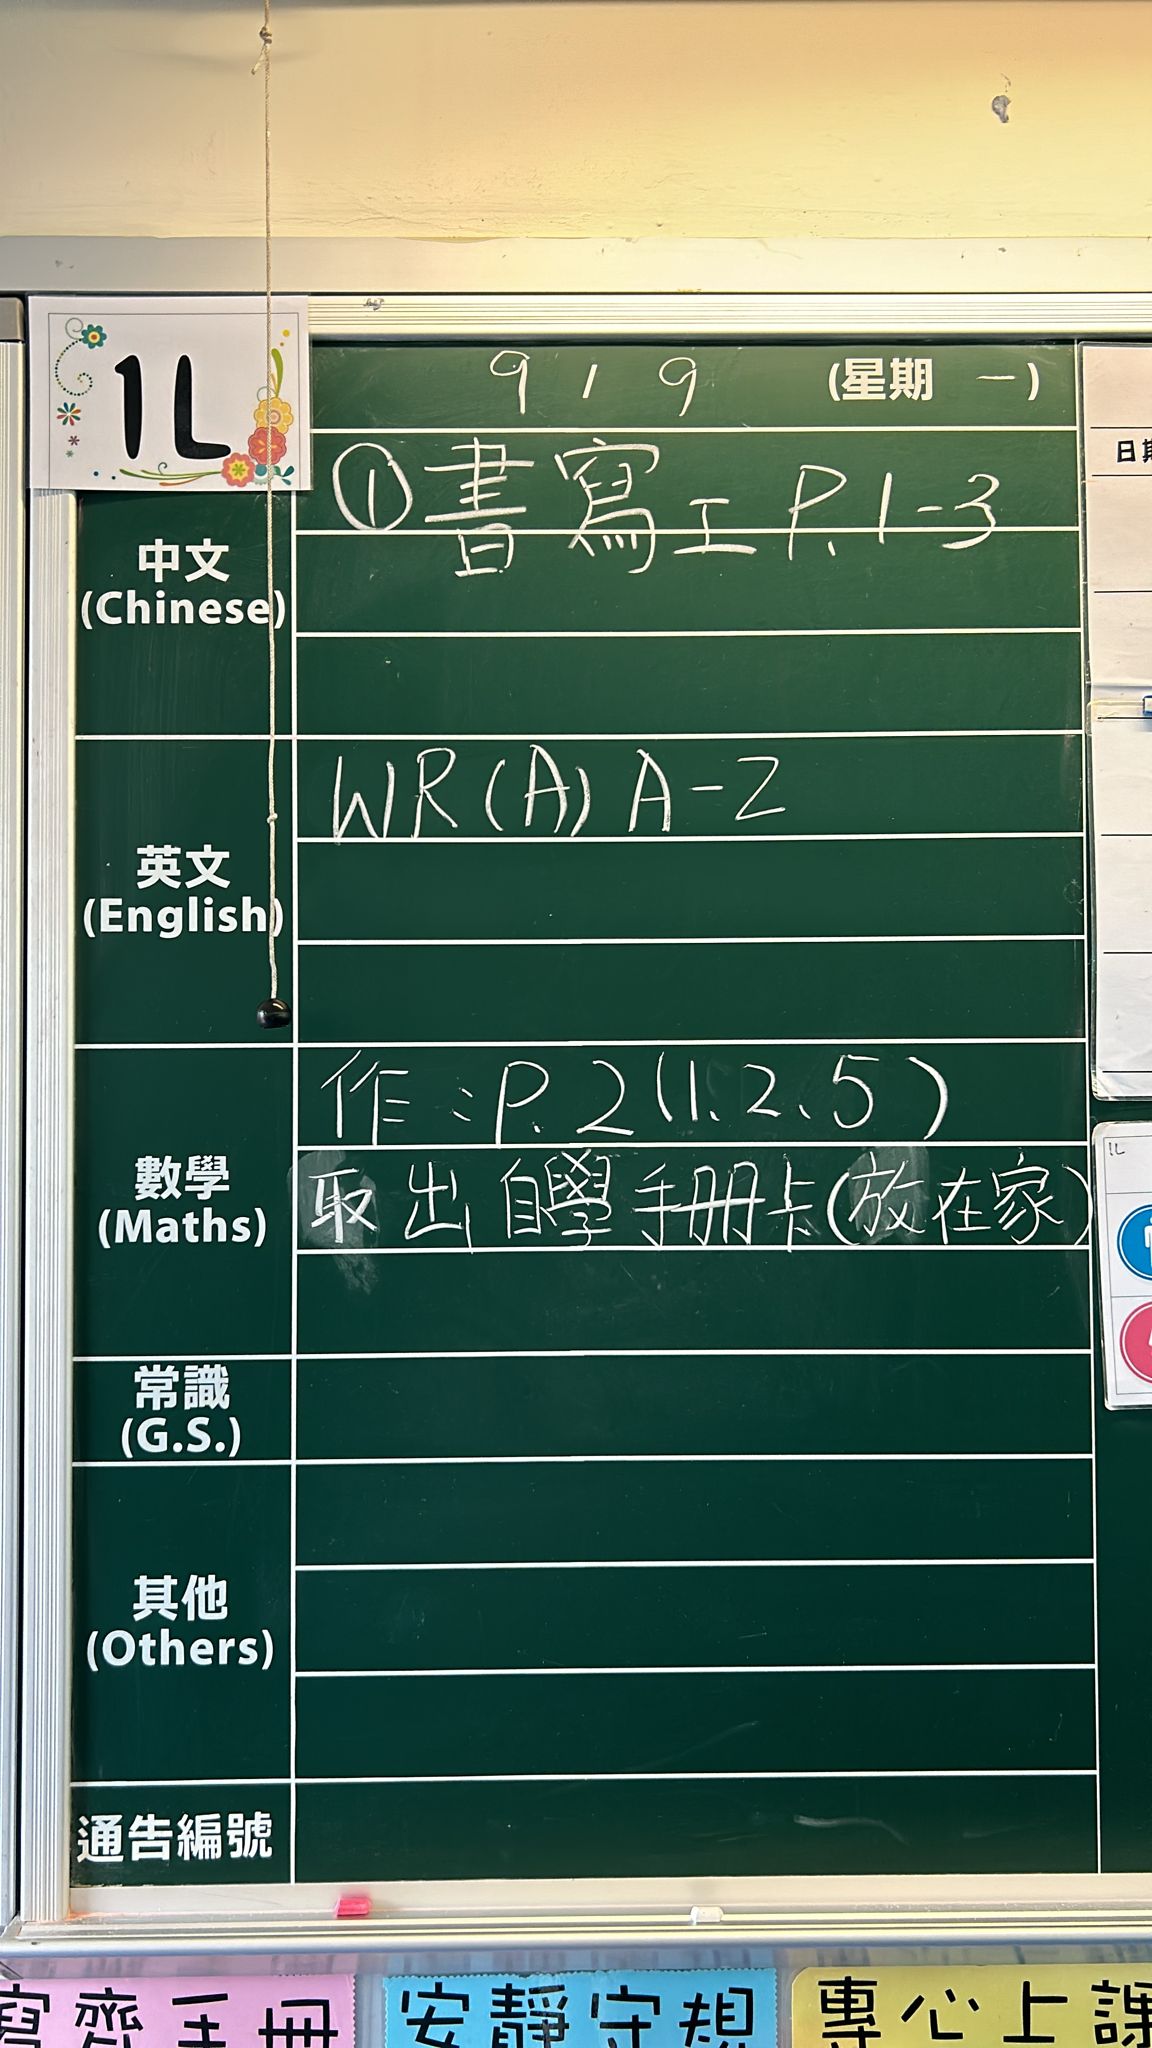 1L
9 / 9 (星期 一)
①書寫工 P.1-3
中文
(Chinese)
WR(A) A-Z
英文
(English)
作:P.2(1、2、5)
取出自學手冊卡(放在家)
數學
(Maths)
常識
(G.S.)
其他
(Others)
通告編號
日期
1L
寫齊手冊
安靜守規
專心上課